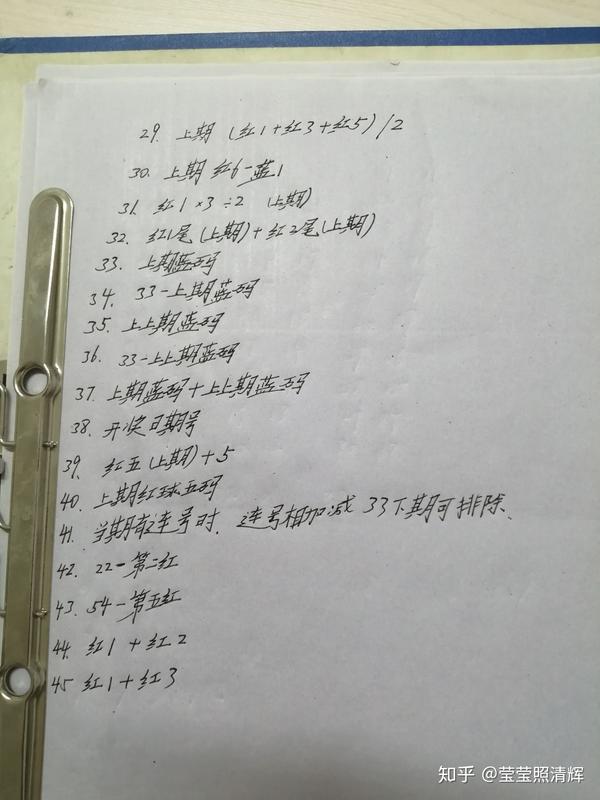 29. 上期 (红1+红3+红5)/2
30. 上期 红6-蓝1
31. 红1×3÷2 (上期)
32. 红1尾(上期)+红2尾(上期)
33. 上期蓝码
34. 33-上期蓝码
35. 上上期蓝码
36. 33-上上期蓝码
37. 上期蓝码+上上期蓝码
38. 开奖日期号
39. 红五(上期)+5
40. 上期红球五码
41. 当期有连号时, 连号相加减33下期可排除、
42. 22-第二红
43. 54-第五红
44. 红1+红2
45 红1+红3
知乎 @莹莹照清辉